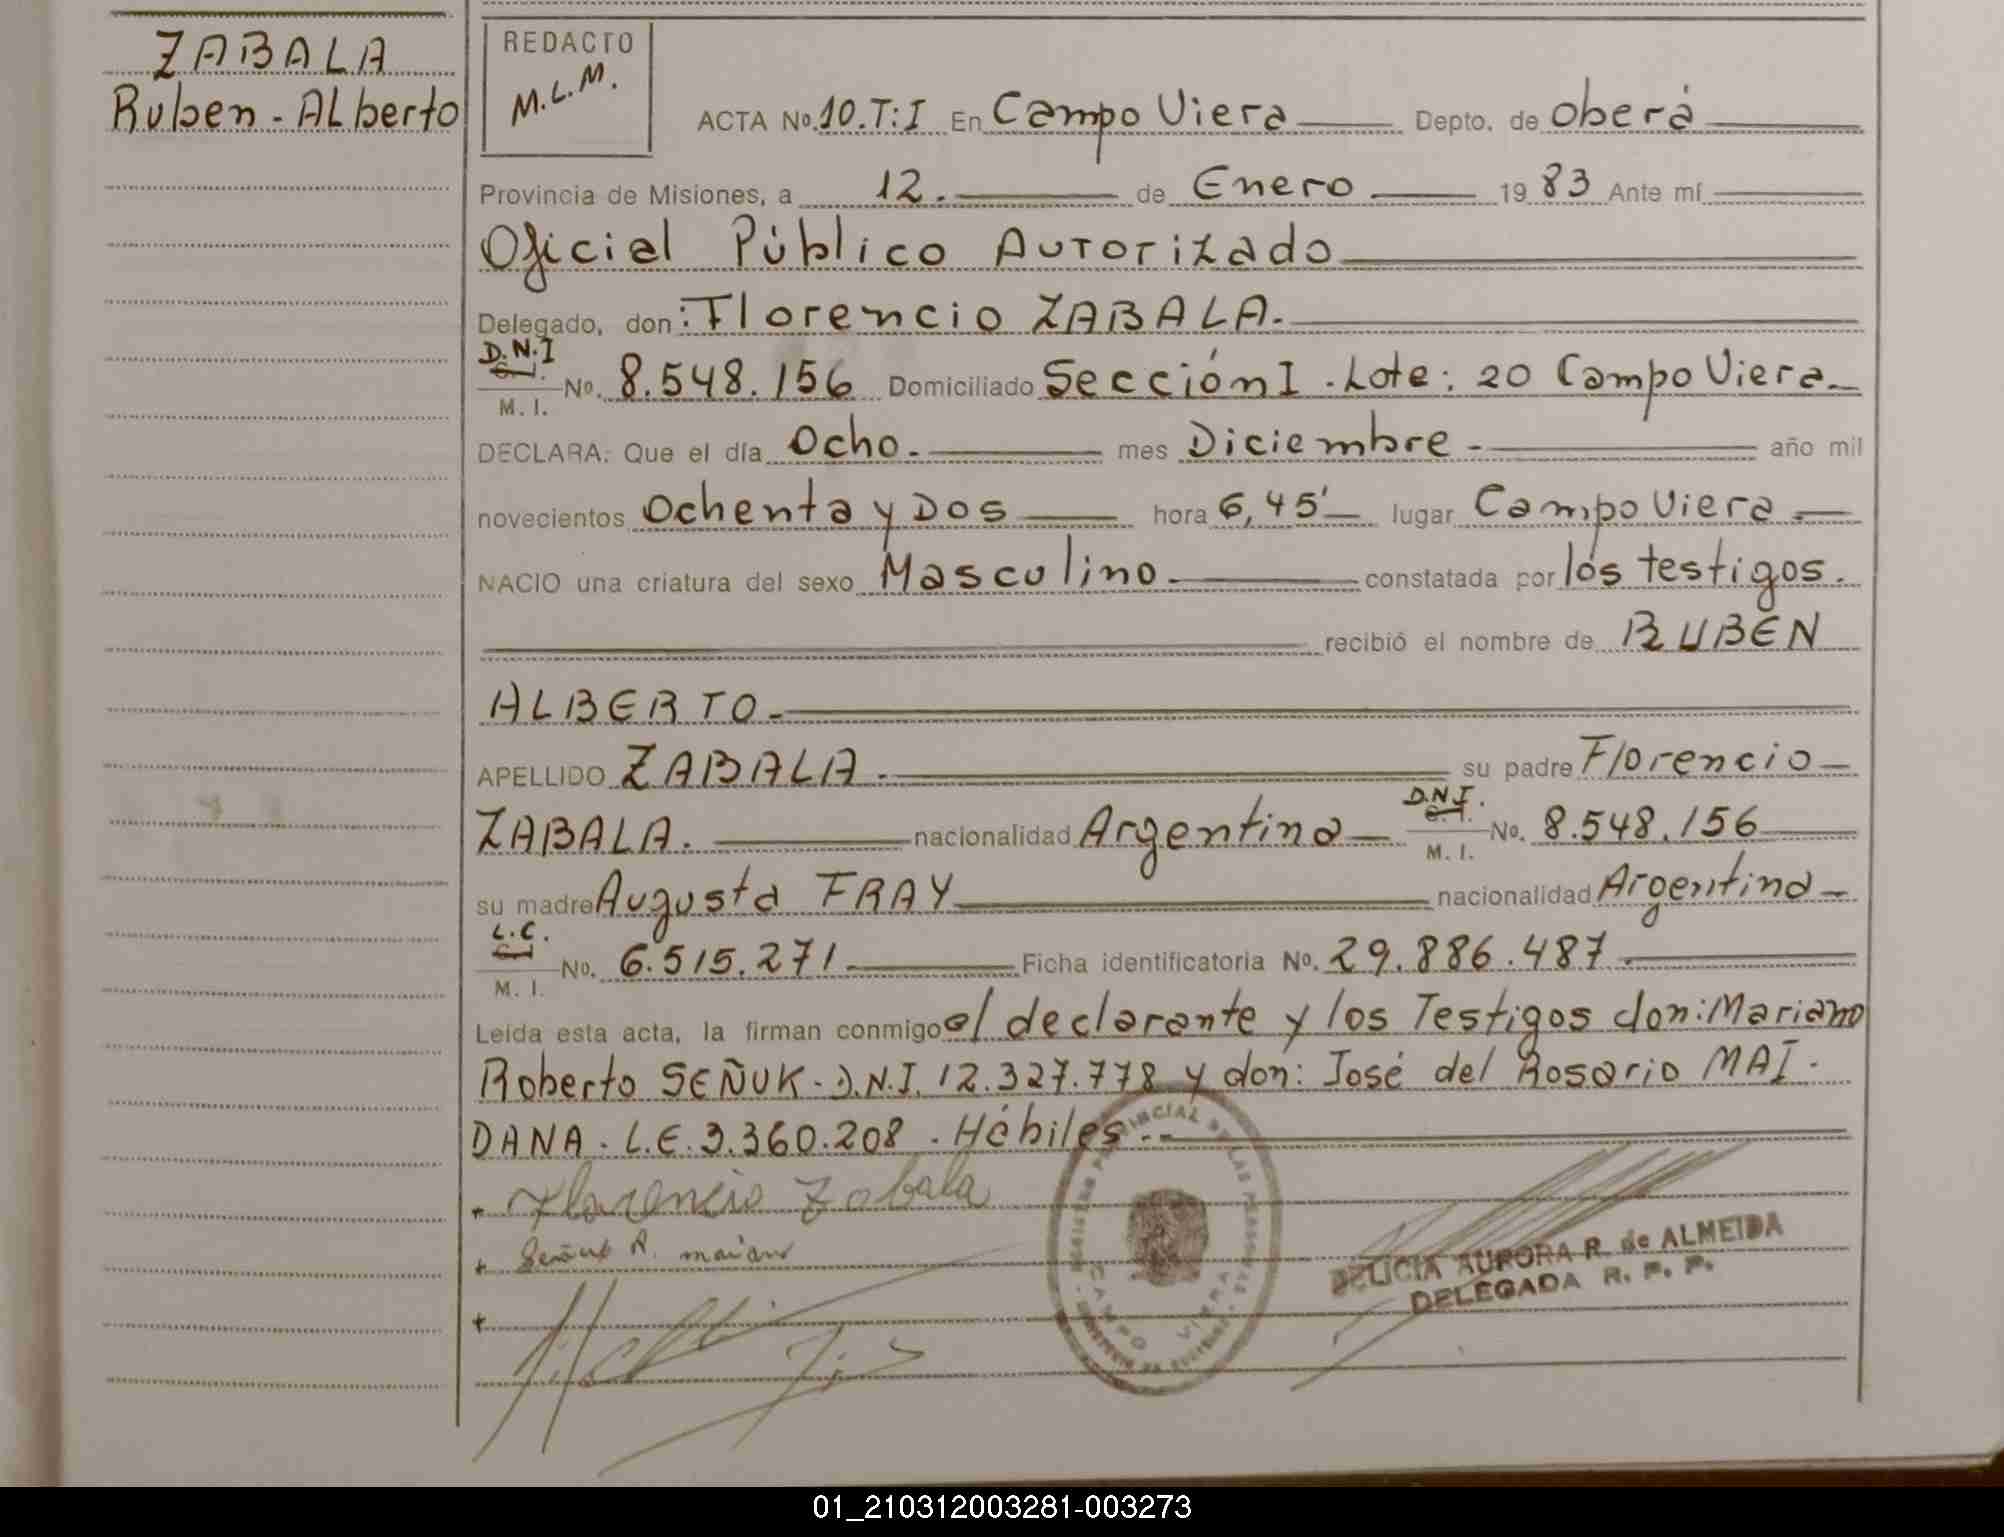 ZABALA
Ruben - Alberto
REDACTO
M.L.M.
ACTA No. 10.T:I En Campo Viera Depto. de Oberá
Provincia de Misiones, a 12. de Enero 1983 Ante mí
Oficial Público Autorizado
Delegado, don: Florencio ZABALA.
D.N.I
C.I.
M. I. No. 8.548.156 Domiciliado Sección I . Lote: 20 Campo Viera
DECLARA: Que el día Ocho. mes Diciembre - año mil
novecientos Ochenta y Dos hora 6,45' lugar Campo Viera
NACIO una criatura del sexo Masculino. constatada por los testigos.
recibió el nombre de RUBEN
ALBERTO.
APELLIDO ZABALA. su padre Florencio
ZABALA. nacionalidad Argentina D.N.I. C.I. M. I. No. 8.548.156
su madre Augusta FRAY nacionalidad Argentina
L.C.
C.I.
M. I. No. 6.515.271 Ficha identificatoria No. 29.886.487
Leida esta acta, la firman conmigo el declarante y los Testigos don: Mariano
Roberto SEÑUK - D.N.I. 12.327.778 y don: José del Rosario MAI-
DANA . L.E. 3.360.208 . Hábiles.-
Florencio Zabala
Señuk R. mariano
REGISTRO PROVINCIAL DE LAS PERSONAS
CAMPO VIERA
DELICIA AURORA R. de ALMEIDA
DELEGADA R. P. P.
01_210312003281-003273